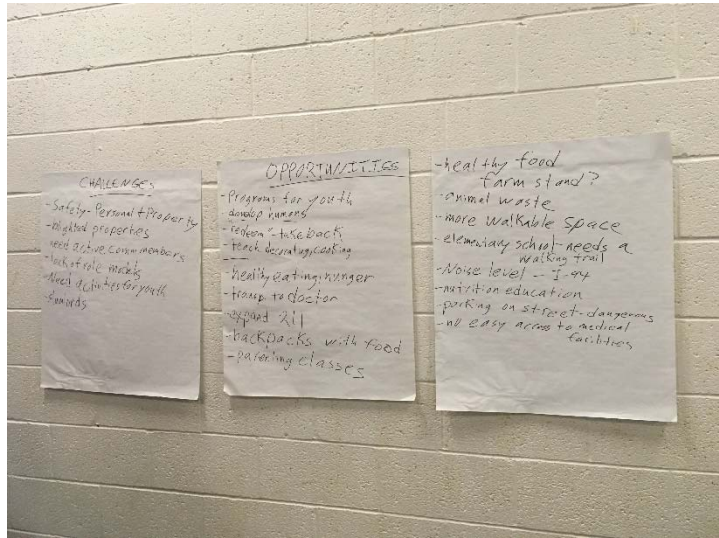 CHALLENGES
-Safety-Personal + Property
-blighted properties
need active comm members
-lack of role models
-Need activities for youth
OPPORTUNITIES
-Programs for youth
develop humans
-"redeem"-take back
-teach decorating, cooking
-healthy eating, hunger
-transp to doctor
-expand 211
-backpacks with food
-parenting classes
-healthy food
farm stand?
-animal waste
-more walkable space
-elementary school-needs a
walking trail
-Noise level -- I-94
-nutrition education
-parking on street-dangerous
-no easy access to medical
facilities